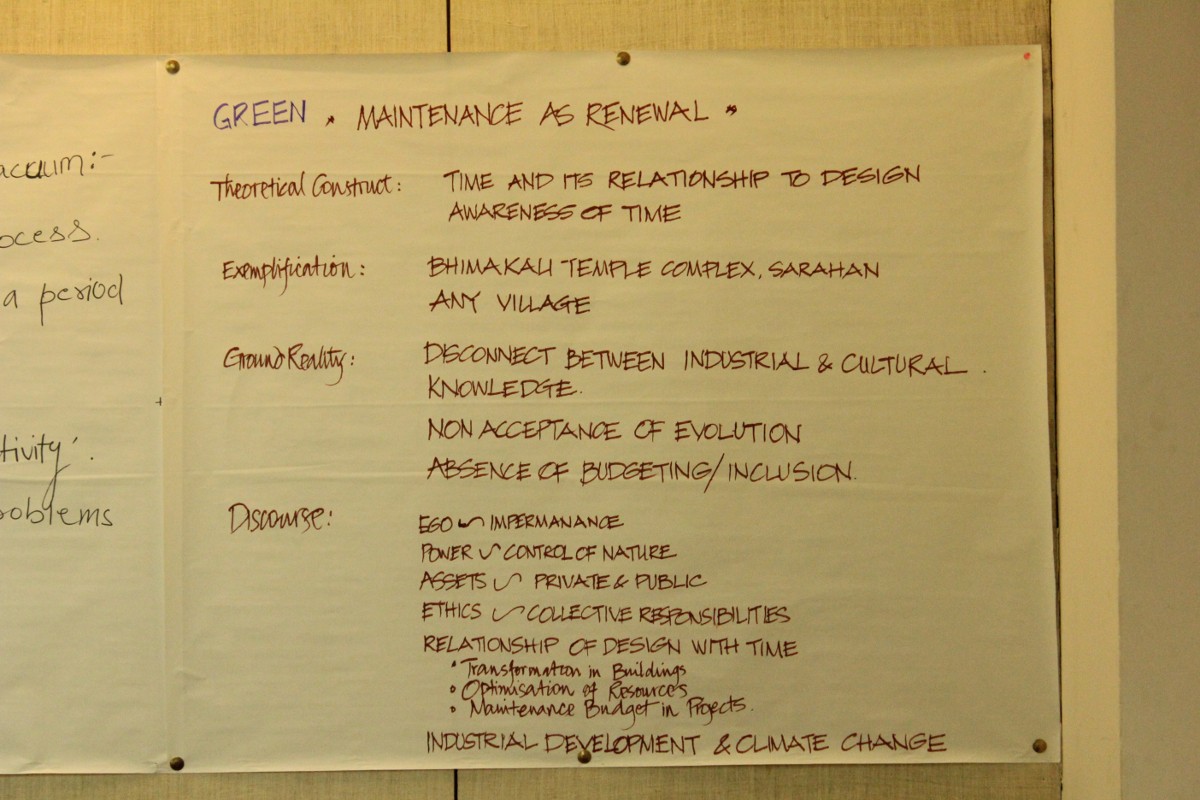 acuum:-
ocess.
a period
tivity'.
roblems
GREEN * MAINTENANCE AS RENEWAL *
Theoretical Construct: TIME AND ITS RELATIONSHIP TO DESIGN
AWARENESS OF TIME
Exemplification: BHIMAKALI TEMPLE COMPLEX, SARAHAN
ANY VILLAGE
Ground Reality: DISCONNECT BETWEEN INDUSTRIAL & CULTURAL.
KNOWLEDGE.
NON ACCEPTANCE OF EVOLUTION
ABSENCE OF BUDGETING/INCLUSION.
Discourse: EGO ~ IMPERMANANCE
POWER ~ CONTROL OF NATURE
ASSETS ~ PRIVATE & PUBLIC
ETHICS ~ COLLECTIVE RESPONSIBILITIES
RELATIONSHIP OF DESIGN WITH TIME
• Transformation in Buildings
• Optimisation of Resources
• Maintenance Budget in Projects.
INDUSTRIAL DEVELOPMENT & CLIMATE CHANGE